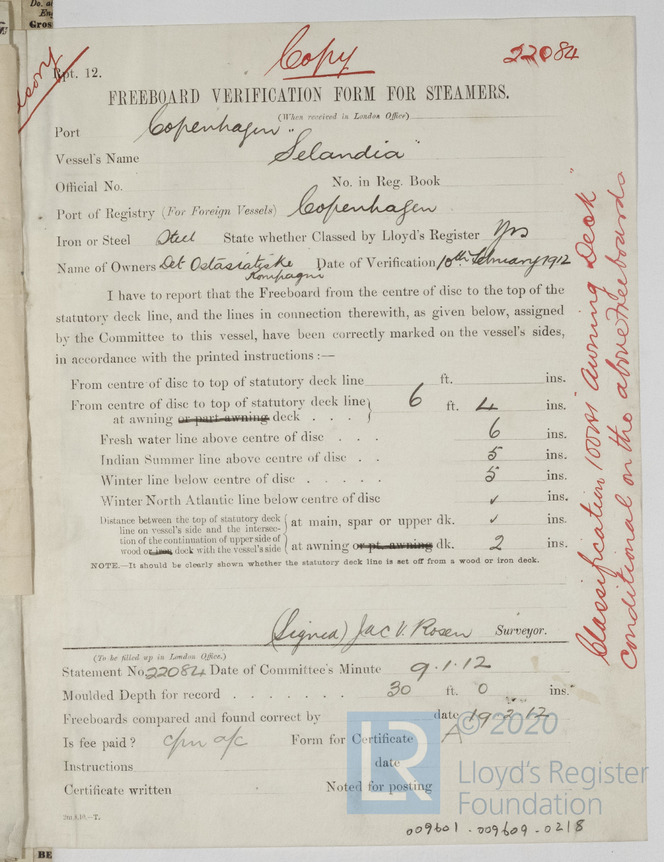 Copy
22084
Rpt. 12.
FREEBOARD VERIFICATION FORM FOR STEAMERS.
(When received in London Office)
Port Copenhagen
Vessel's Name "Selandia"
Official No. No. in Reg. Book
Port of Registry (For Foreign Vessels) Copenhagen
Iron or Steel Steel State whether Classed by Lloyd's Register Yes
Name of Owners Det Ostasiatiske Kompagni Date of Verification 10th February 1912
I have to report that the Freeboard from the centre of disc to the top of the
statutory deck line, and the lines in connection therewith, as given below, assigned
by the Committee to this vessel, have been correctly marked on the vessel's sides,
in accordance with the printed instructions :—
From centre of disc to top of statutory deck line ft. ins.
From centre of disc to top of statutory deck line
at awning or part awning deck . . . 6 ft. 4 ins.
Fresh water line above centre of disc . . . 6 ins.
Indian Summer line above centre of disc . . 5 ins.
Winter line below centre of disc . . . . . 5 ins.
Winter North Atlantic line below centre of disc ✓ ins.
Distance between the top of statutory deck
line on vessel's side and the intersec-
tion of the continuation of upper side of
wood or iron deck with the vessel's side
at main, spar or upper dk. ✓ ins.
at awning or pt. awning dk. 2 ins.
NOTE.—It should be clearly shown whether the statutory deck line is set off from a wood or iron deck.
(Signed) Jac V. Rosen Surveyor.
(To be filled up in London Office.)
Statement No. 22084 Date of Committee's Minute 9.1.12
Moulded Depth for record . . . . . . . 30 ft. 0 ins.
Freeboards compared and found correct by date 19.2.12
Is fee paid? c/m a/c Form for Certificate A
Instructions date
Certificate written Noted for posting
2m.8.10.—T.
Classification 100A1 "Awning Deck"
conditional on the above Freeboards
© 2020
LR
Lloyd's Register
Foundation
009601-009609-0218
BE